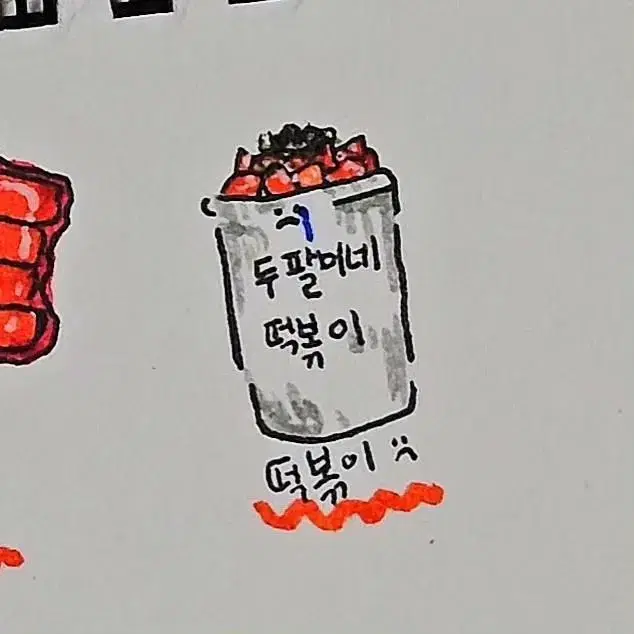 두팔머네
떡볶이
떡볶이 :(